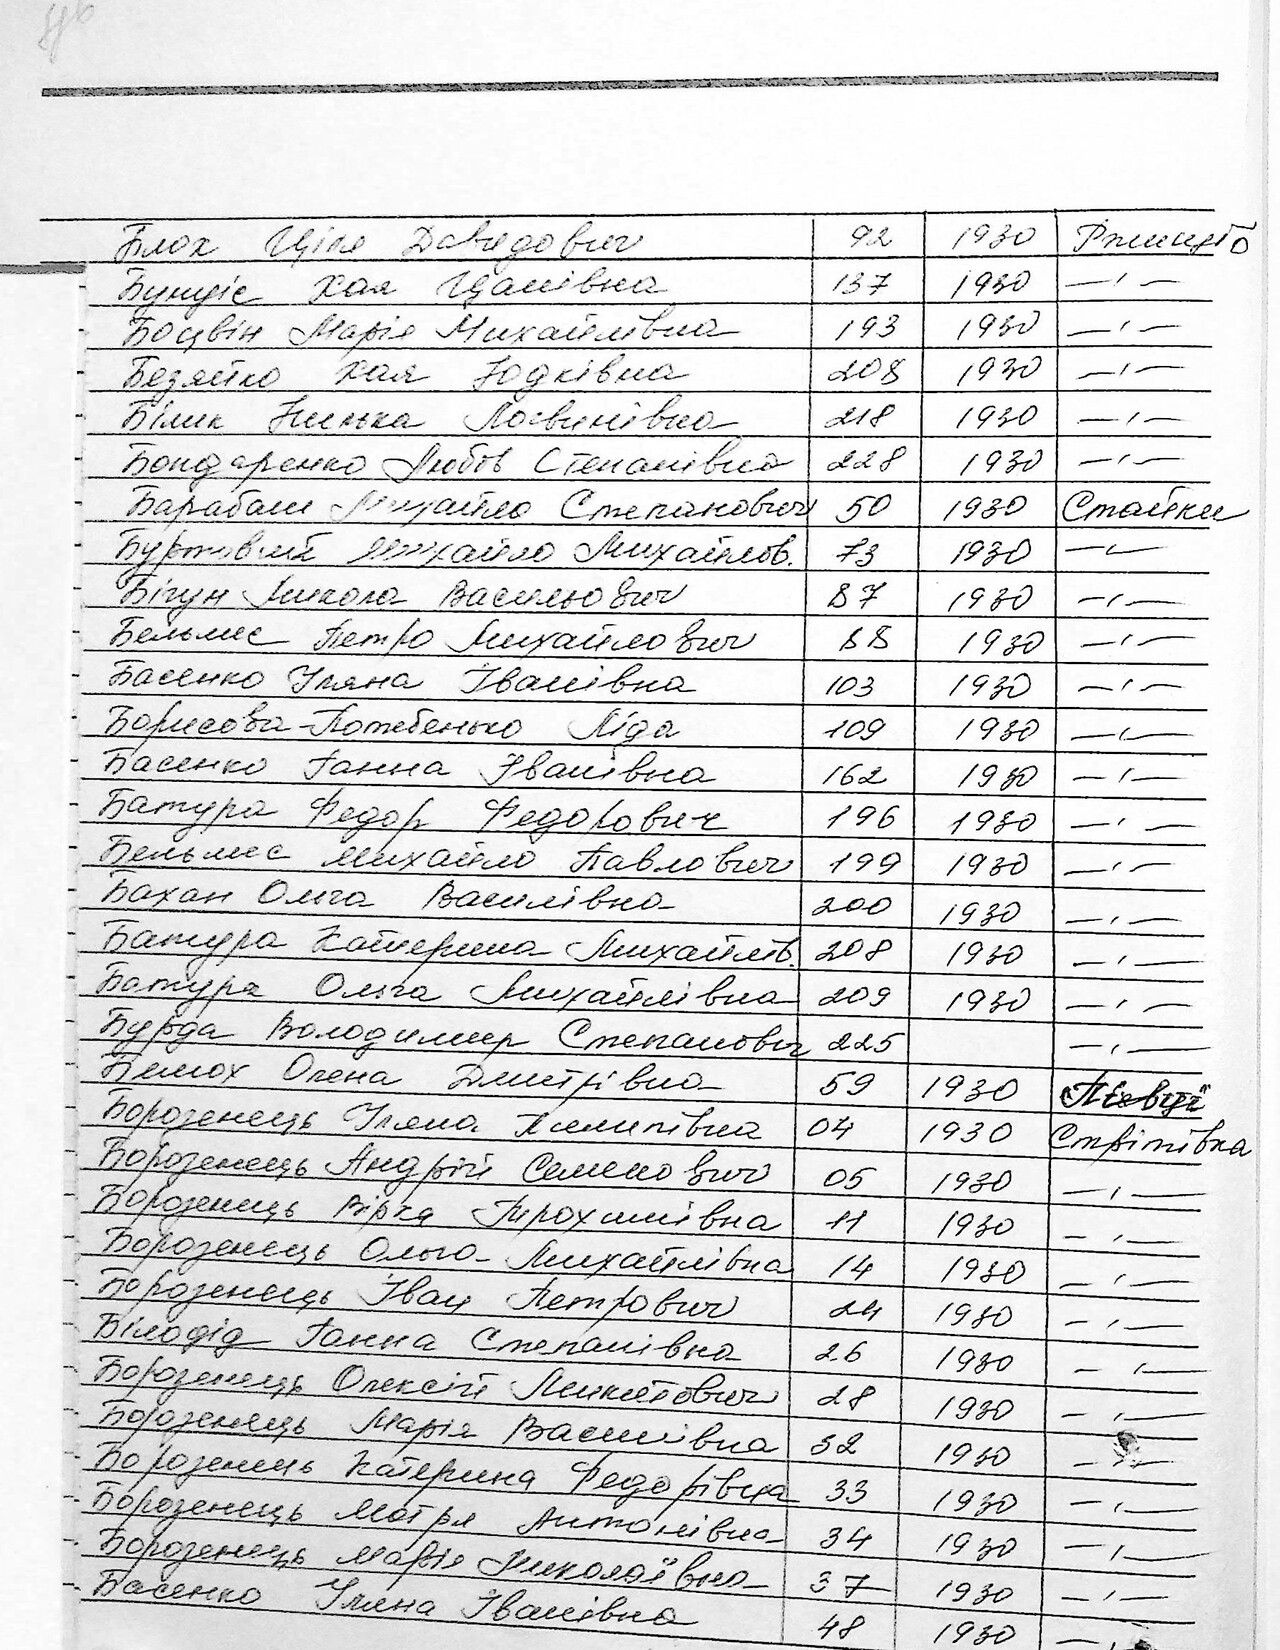 Блох Ціля Давидович 92 1930 Ржищів
Бундіс Хая Іцаківна 137 1930 —〃—
Боцвін Марія Михайлівна 193 1930 —〃—
Безяйко Хая Юдківна 208 1930 —〃—
Білик Килька Логвинівна 218 1930 —〃—
Бондаренко Любов Степанівна 228 1930 —〃—
Барабаш Михайло Степанович 50 1930 Стайки
Буртовий Михайло Михайлов. 73 1930 —〃—
Бігун Микола Васильович 87 1930 —〃—
Бельмес Петро Михайлович 88 1930 —〃—
Басенко Уляна Іванівна 103 1930 —〃—
Борисова-Потебенько Ліда 109 1930 —〃—
Басенко Ганна Іванівна 162 1930 —〃—
Батура Федор Федорович 196 1930 —〃—
Бельмес Михайло Павлович 199 1930 —〃—
Бахан Ольга Василівна 200 1930 —〃—
Батура Катерина Михайлів. 208 1930 —〃—
Батура Ольга Михайлівна 209 1930 —〃—
Бурда Володимир Степанович 225 —〃—
Бемох Олена Дмитрівна 59 1930
Борозенець Уляна Пилипівна 04 1930 Стрітівка
Борозенець Андрій Семенович 05 1930 —〃—
Борозенець Вірка Трохимівна 11 1930 —〃—
Борозенець Ольга Михайлівна 14 1930 —〃—
Борозенець Іван Петрович 24 1930 —〃—
Білодід Ганна Степанівна 26 1930 —〃—
Борозенець Олексій Микитович 28 1930 —〃—
Борозенець Марія Василівна 32 1930 —〃—
Борозенець Катерина Федорівна 33 1930 —〃—
Борозенець Мотря Антонівна 34 1930 —〃—
Борозенець Марія Миколаївна 37 1930 —〃—
Басенко Уляна Іванівна 48 1930 —〃—